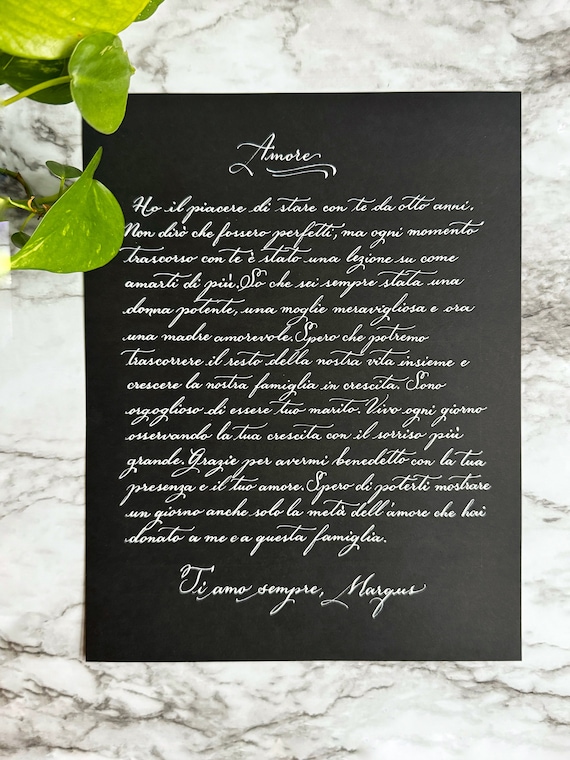 Amore
Ho il piacere di stare con te da otto anni.
Non dirò che fossero perfetti, ma ogni momento
trascorso con te è stato una lezione su come
amarti di più. So che sei sempre stata una
donna potente, una moglie meravigliosa e ora
una madre amorevole. Spero che potremo
trascorrere il resto della nostra vita insieme e
crescere la nostra famiglia in crescita. Sono
orgoglioso di essere tuo marito. Vivo ogni giorno
osservando la tua crescita con il sorriso più
grande. Grazie per avermi benedetto con la tua
presenza e il tuo amore. Spero di poterti mostrare
un giorno anche solo la metà dell'amore che hai
donato a me e a questa famiglia.
Ti amo sempre, Marqus